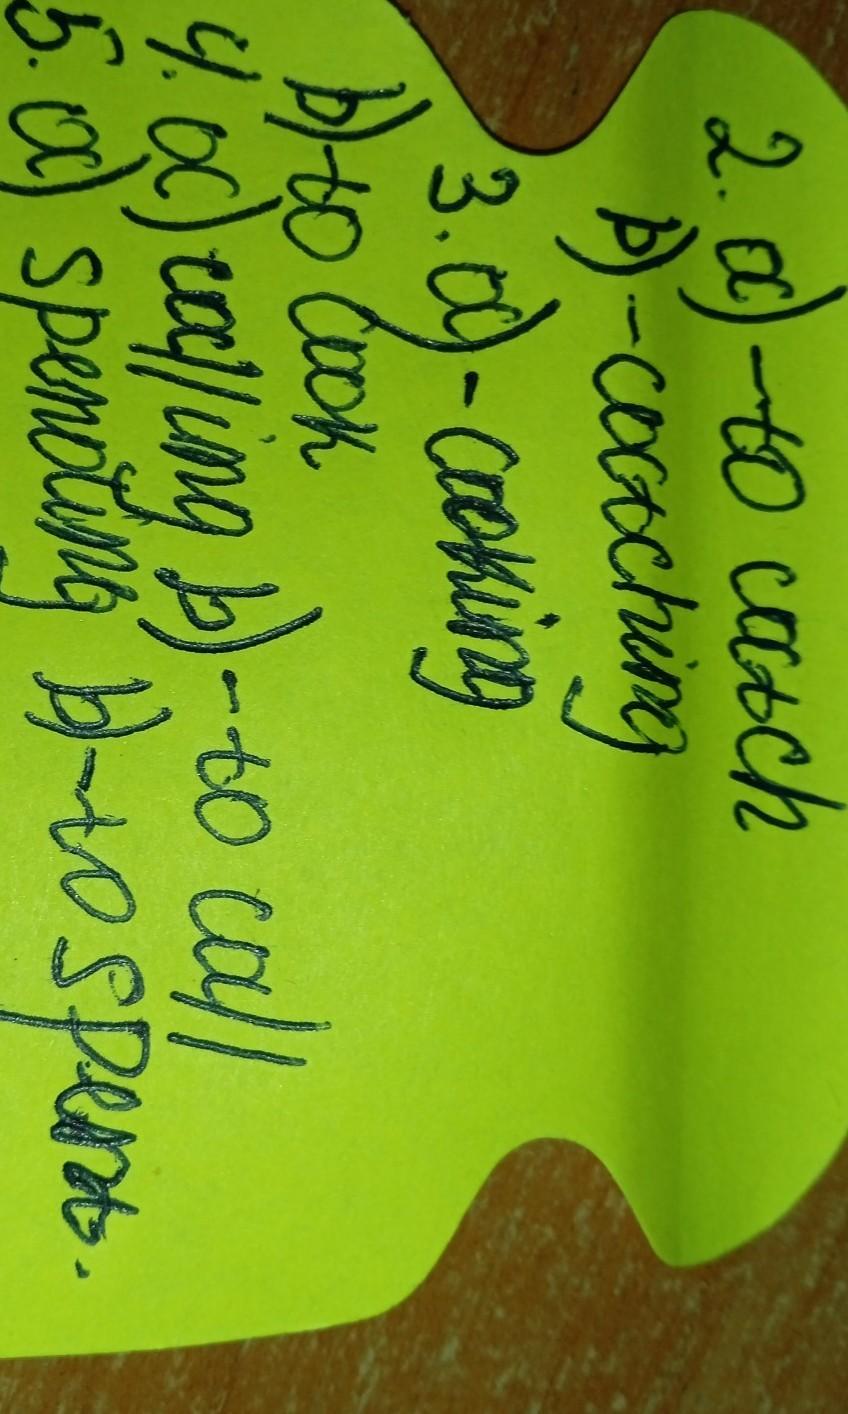 2. a) - to catch
b) - catching
3. a) - cooking
b) - to cook
4. a) calling b) - to call
5. a) spending b) - to spend.